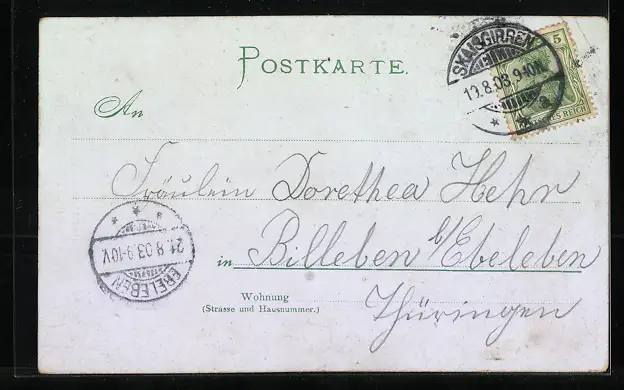 POSTKARTE.
SKAISGIRREN
19.8.03.9-10V.
* * a
5
DEUTSCHES REICH
An
Fräulein Dorothea Hehr
in Billeben b/ Ebeleben
Thüringen
Wohnung
(Strasse und Hausnummer.)
21.8.03.9-10V.
EBELEBEN